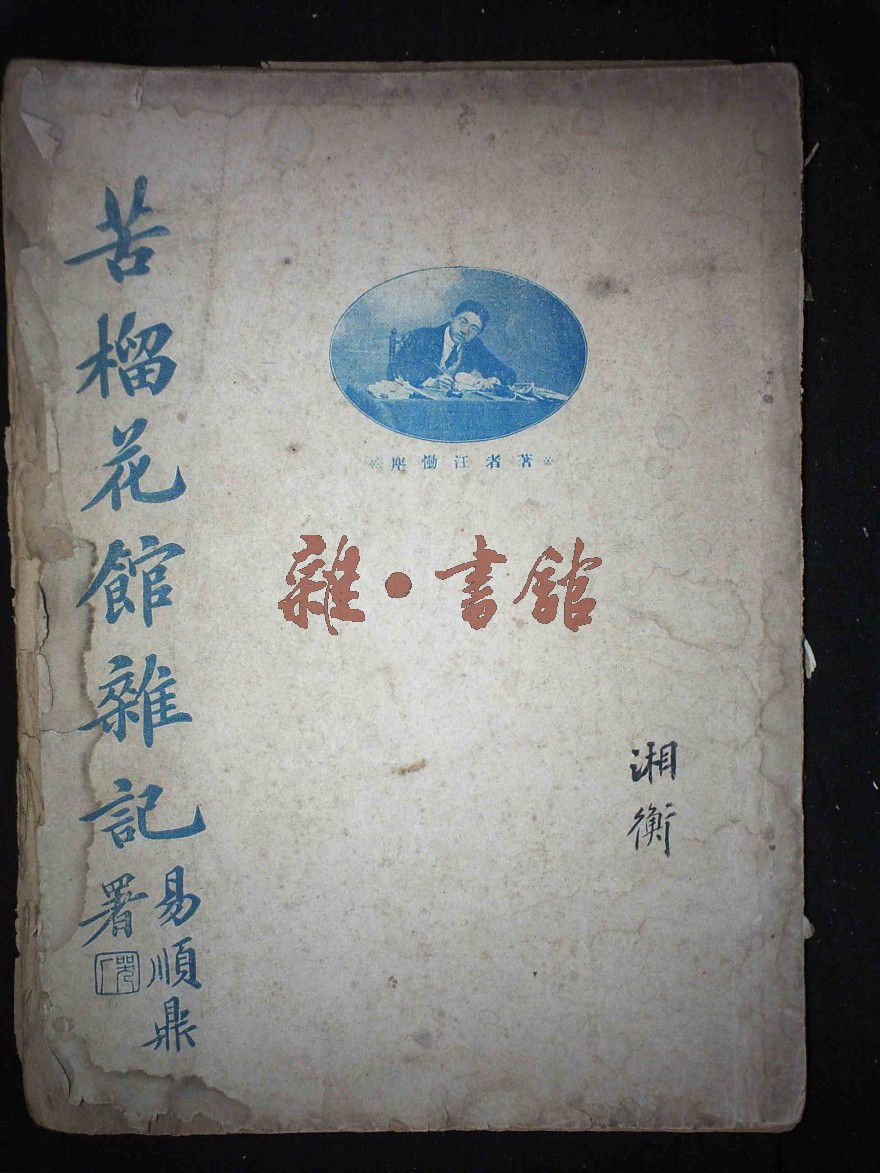 苦榴花館雜記
易順鼎
署
著者汪慟塵
雜·書館
湘衡